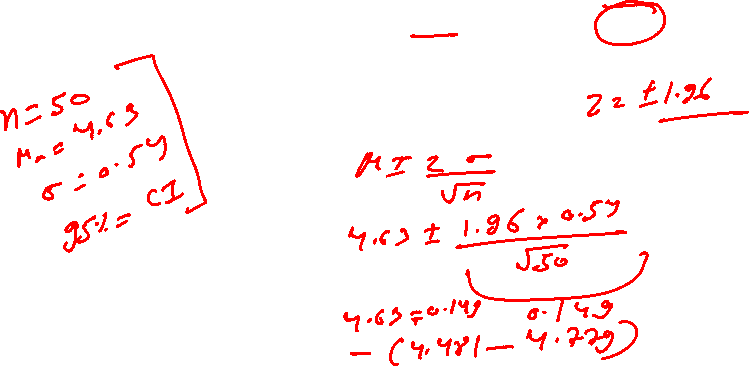 n = 50
μ = 4.63
σ = 0.54
95% = CI
z = ±1.96
μ ± z σ / √n
4.63 ± 1.96 × 0.54 / √50
0.149
4.63 ∓ 0.149
– (4.481 – 4.779)